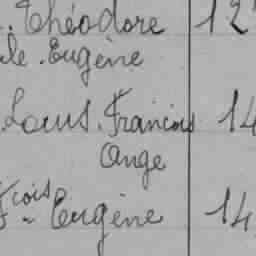 . Théodore 12
le. Eugène
Louis. François 14
Ange
Fçois - Eugène 14